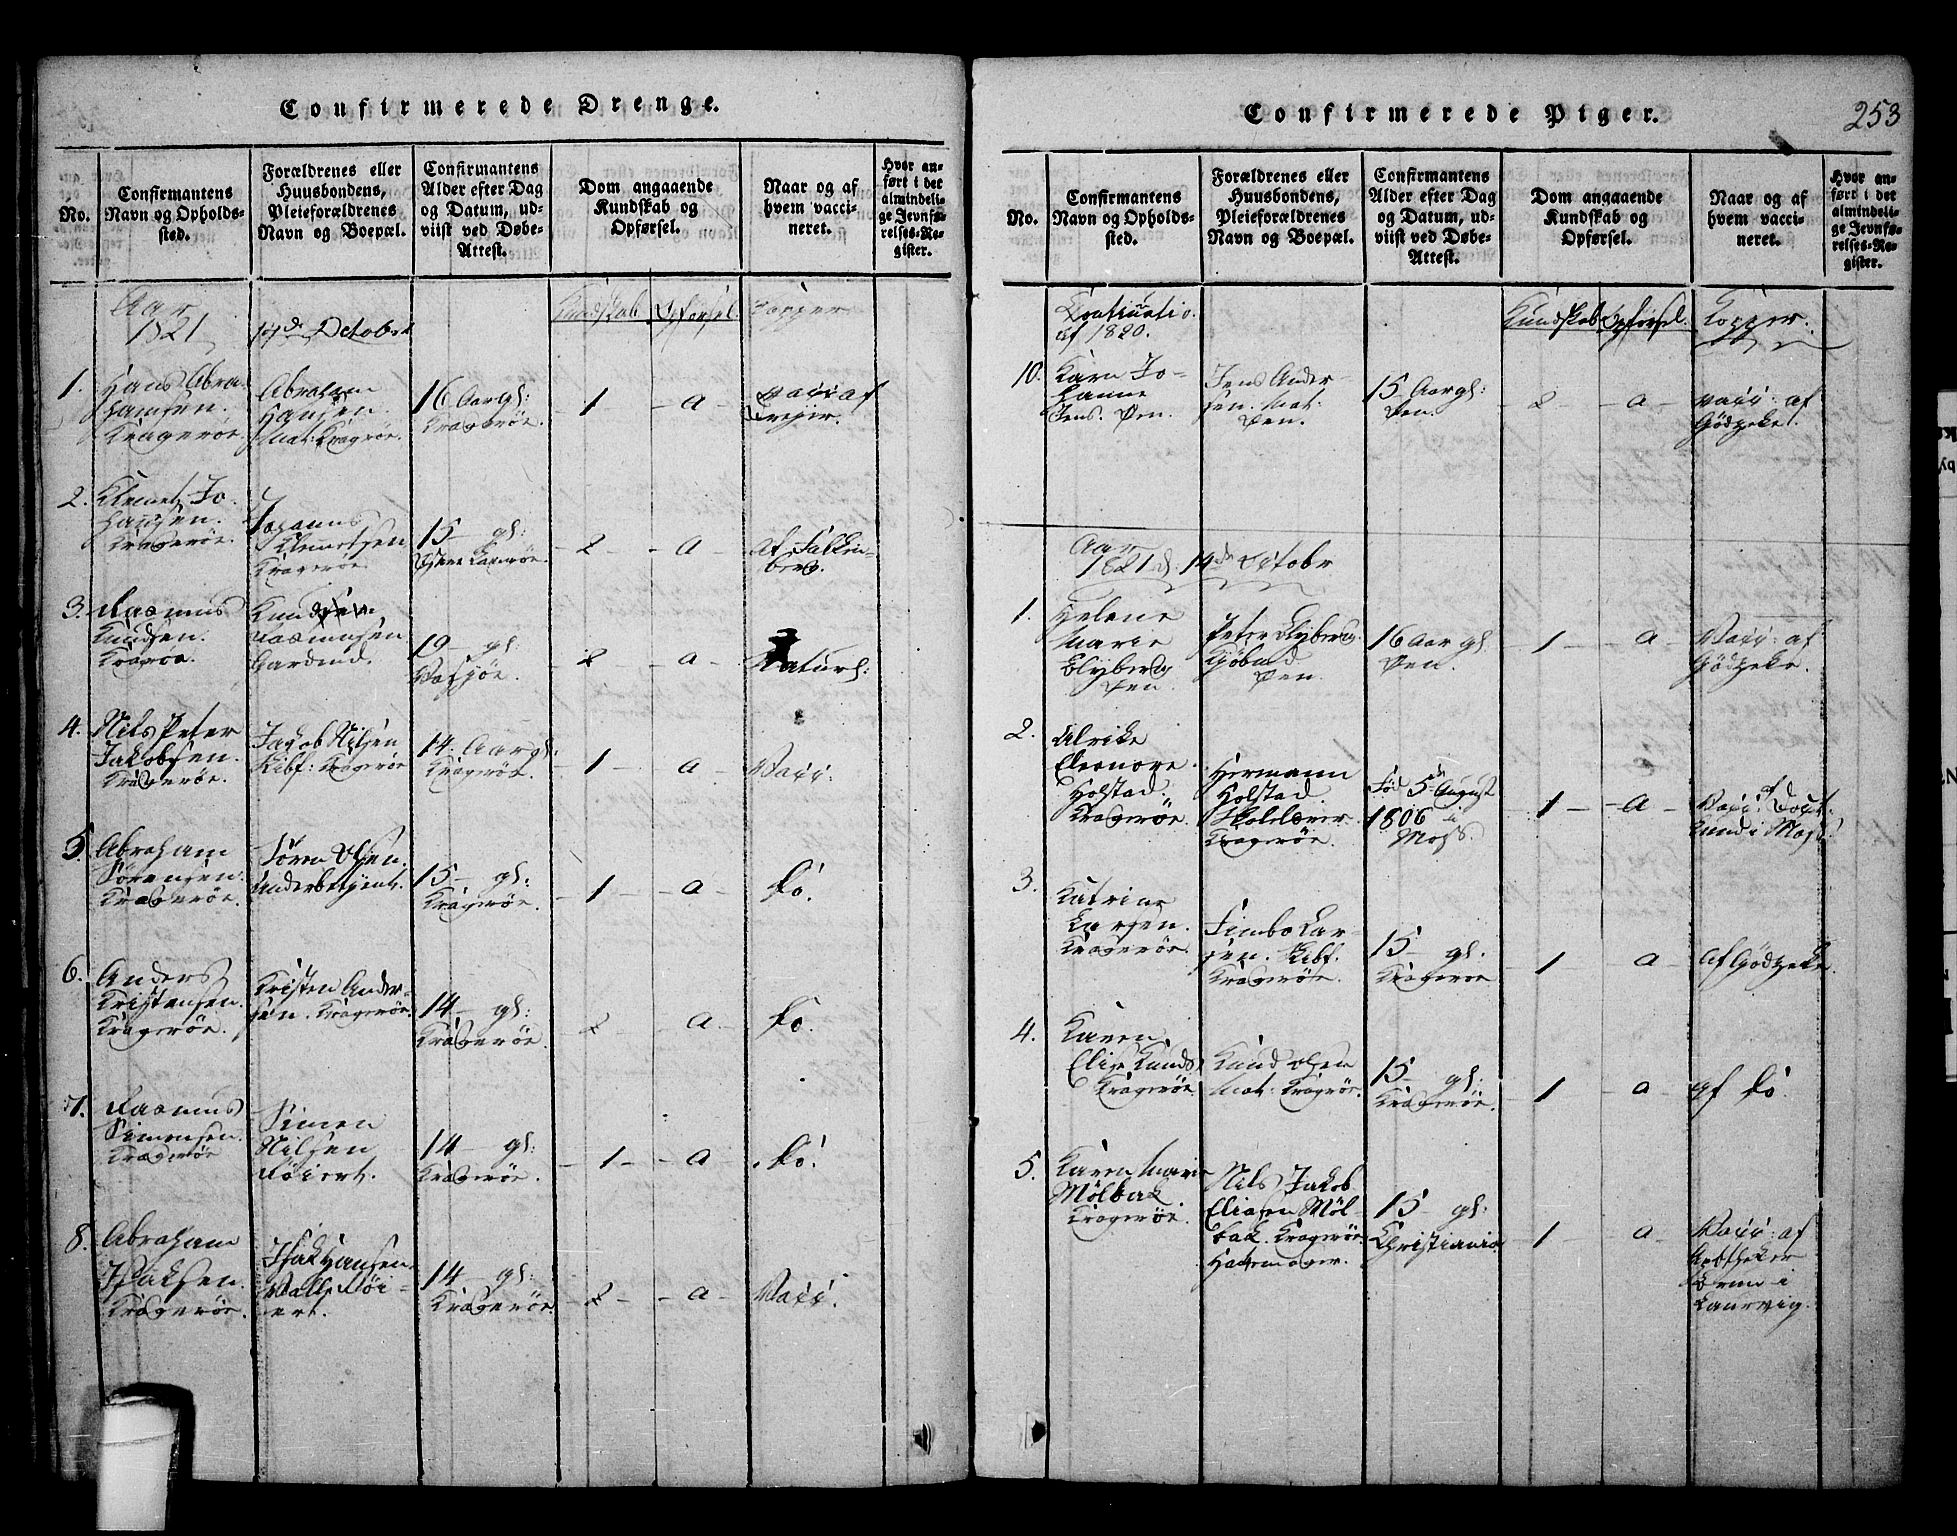 Confirmerede Drenge.
No.
Confirmantens
Navn og Opholds-
sted.
Forældrenes eller
Huusbondens,
Pleieforældrenes
Navn og Boepæl.
Confirmantens
Alder efter Dag
og Datum, ud-
viist ved Døbe-
Attest.
Dom angaaende
Kundskab og
Opførsel.
Naar og af
hvem vacci-
neret.
Hvor an-
ført i det
almindeli-
ge Jevnfø-
relses-Re-
gister.
Aar
1821
14de October
Kundskab. Opførsel.
Kopper
1. Hans Abra-
hamsen.
Kragerøe.
Abraham
Hansen.
Mat: Kragerøe.
16 Aar gl:
Kragerøe.
1 - a -
Vacc: af
2. Klemet Jo-
hansen.
Kragerøe.
Johannes
Klemetsen
Kragerøe
15 - gl:
- 2 - - a -
af Falken-
berg.
3. Rasmus
Knudsen.
Kragerøe.
Knud
Rasmusen
Gardmd.
19 - gl:
- 2 - a -
Naturl:
4. Nils Peter
Jakobsen.
Kragerøe.
Jakob Nilsen
Skibf: Kragerøe
14. Aar gl:
Kragerøe.
- 1 - a -
Vacc:
5. Abraham
Sörensen.
Kragerøe.
Sören Olsen.
Underbetjent.
15 - gl:
Kragerøe.
- 1 - - a -
do.
6. Anders
Kristensen.
Kragerøe.
Kristen Ander-
sen. Kragerøe.
14 - gl:
Kragerøe.
2 - a -
do.
7. Rasmus
Simensen.
Kragerøe
Simen
Nilsen
Røiert.
14 - gl:
Kragerøe.
- 1 - - a
do.
8. Abraham
Isaksen.
Kragerøe.
Isak Hansen.
Valle Røi-
ert.
14 - gl:
Kragerøe.
- 2 - - a -
Vacc:
Confirmerede Piger.
253
No.
Confirmantens
Navn og Opholds-
sted.
Forældrenes eller
Huusbondens,
Pleieforældrenes
Navn og Boepæl.
Confirmantens
Alder efter Dag
og Datum, ud-
viist ved Døbe-
Attest.
Dom angaaende
Kundskab og
Opførsel.
Naar og af
hvem vacci-
neret.
Hvor an-
ført i det
almindeli-
ge Jevnfø-
relses-Re-
gister.
Continuatio
af 1820.
Kundskab Opførsel.
Kopper.
10. Karn Jo-
hanne
Jens. Øen.
Jens Ander-
sen. Mat:
Øen.
15 Aar gl:
Øen.
- 2 - a -
vacc: af
Gödzeke.
Aar
1821 d. 14de Octobr
1. Helene
Marie
Blyberg
Øen.
Peter Blyberg.
Kjöbmd
Øen.
16 Aar gl.
Øen.
1 - a -
Vacc: af
Gödzeke.
2. Ulrike
Eleonore
Holstad.
Kragerøe.
Hermann
Holstad.
Skolelærer
Kragerøe.
Föd 5de August
1806 i
Moss.
1 - - a -
Vacc: af Doct.
Lund i Moss
3. Katrine
Larsen.
Kragerøe.
Simbo Lar-
sen. Skibf.
Kragerøe.
15 - gl.
Kragerøe
1 - a -
af Gödzeke.
4. Karen
Elise Knuds.
Kragerøe.
Knud Olsen
Mat: Kragerøe.
15 - gl:
Kragerøe.
- 1 - a -
af do.
5. Karen Marie
Mölbak
Kragerøe.
Nils Jakob
Eliasen Möl-
bak. Kragerøe.
Hattemager.
15 - gl:
Christiania
- 1 - a -
Vacc: af
Apotheker
i
Laurvig.